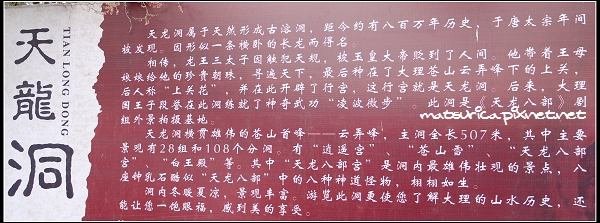 天龍洞
TIAN LONG DONG
天龙洞属于天然形成古溶洞，距今约有八百万年历史，于唐太宗年间
被发现。因形似一条横卧的长龙而得名。
相传，龙王三太子因触犯天规，被玉皇大帝贬到了人间，他带着王母
妹妹给他的珍贵朝珠，寻遍天下，最后种在了大理苍山云弄峰下的上关，
后人称“上关花”，并在此开辟了行宫，这行宫就是天龙洞。后来，大理
国王子段誉在此洞练就了神奇武功“凌波微步”。此洞是《天龙八部》剧
组外景拍摄基地。
天龙洞横贯雄伟的苍山首峰——云弄峰，主洞全长507米，其中主要
景观有28组和108个分洞。有“逍遥宫”、“苍山雷”、“天龙八部
宫”、“白王殿”等。其中“天龙八部宫”是洞内最雄伟壮观的景点，八
座钟乳石酷似“天龙八部”中的八种神道怪物，栩栩如生。
洞内冬暖夏凉，景观丰富。游览此洞更使您了解大理的山水历史，还
能让您一饱眼福，感到美的享受。
matsurica.pixnet.net